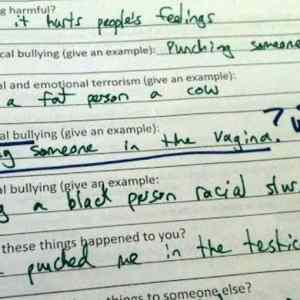 g harmful?
it hurts people's feelings
cal bullying (give an example): Punching someone
al and emotional terrorism (give an example):
a fat person a cow
al bullying (give an example):
g someone in the vagina. ?
al bullying (give an example:
g a black person racial slus
these things happened to you?
punched me in the testic
things to someone else?